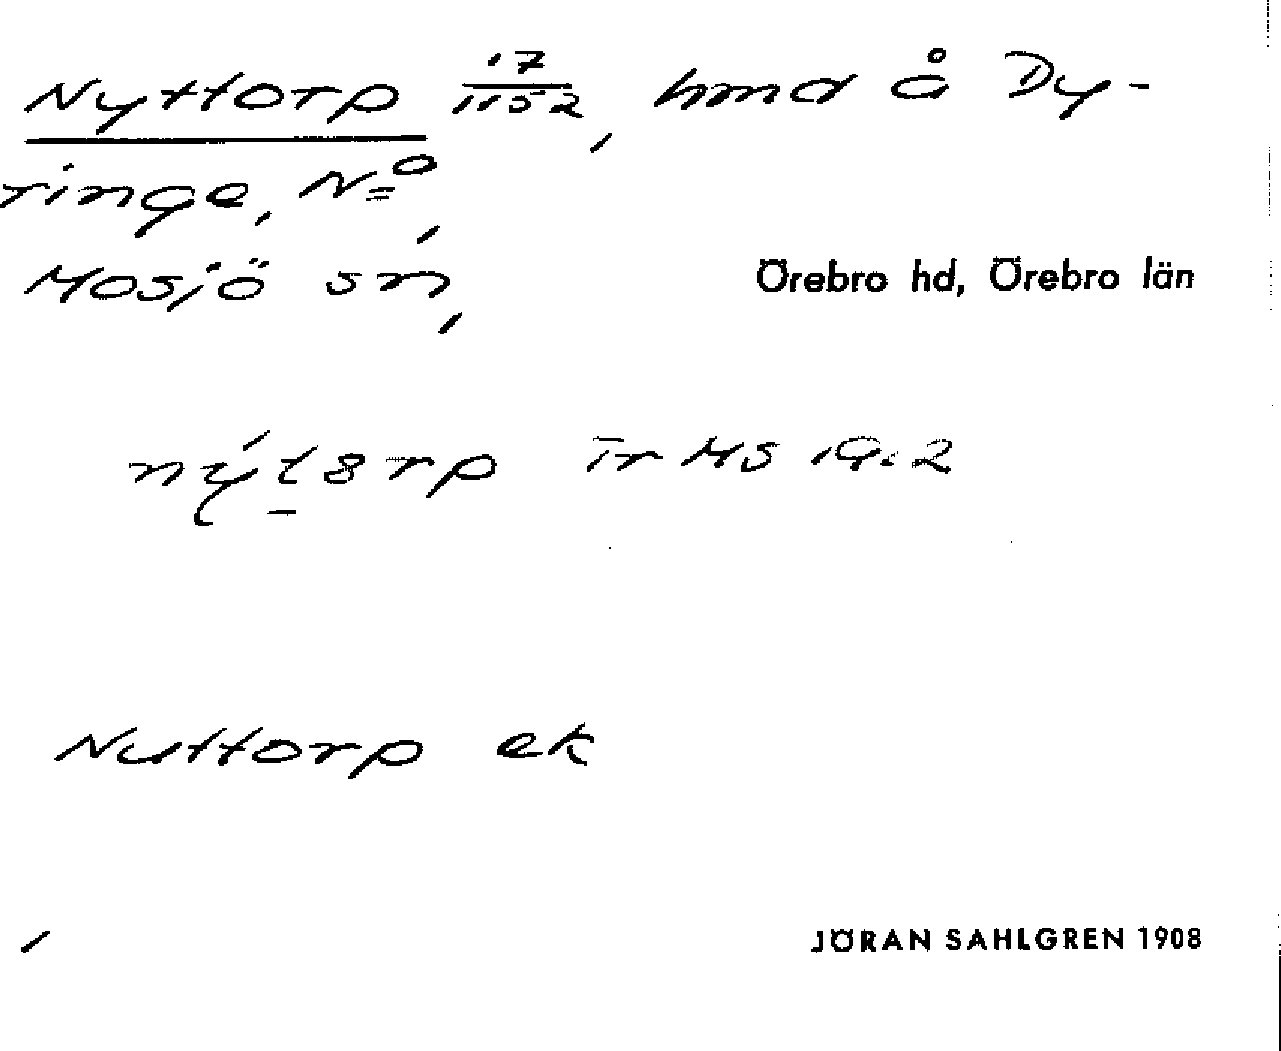 Nyttorp 17/1152, hmd å Dy-
tinge, Nº,
Mosjö sn, Örebro hd, Örebro län
Nuttorp ek
JÖRAN SAHLGREN 1908